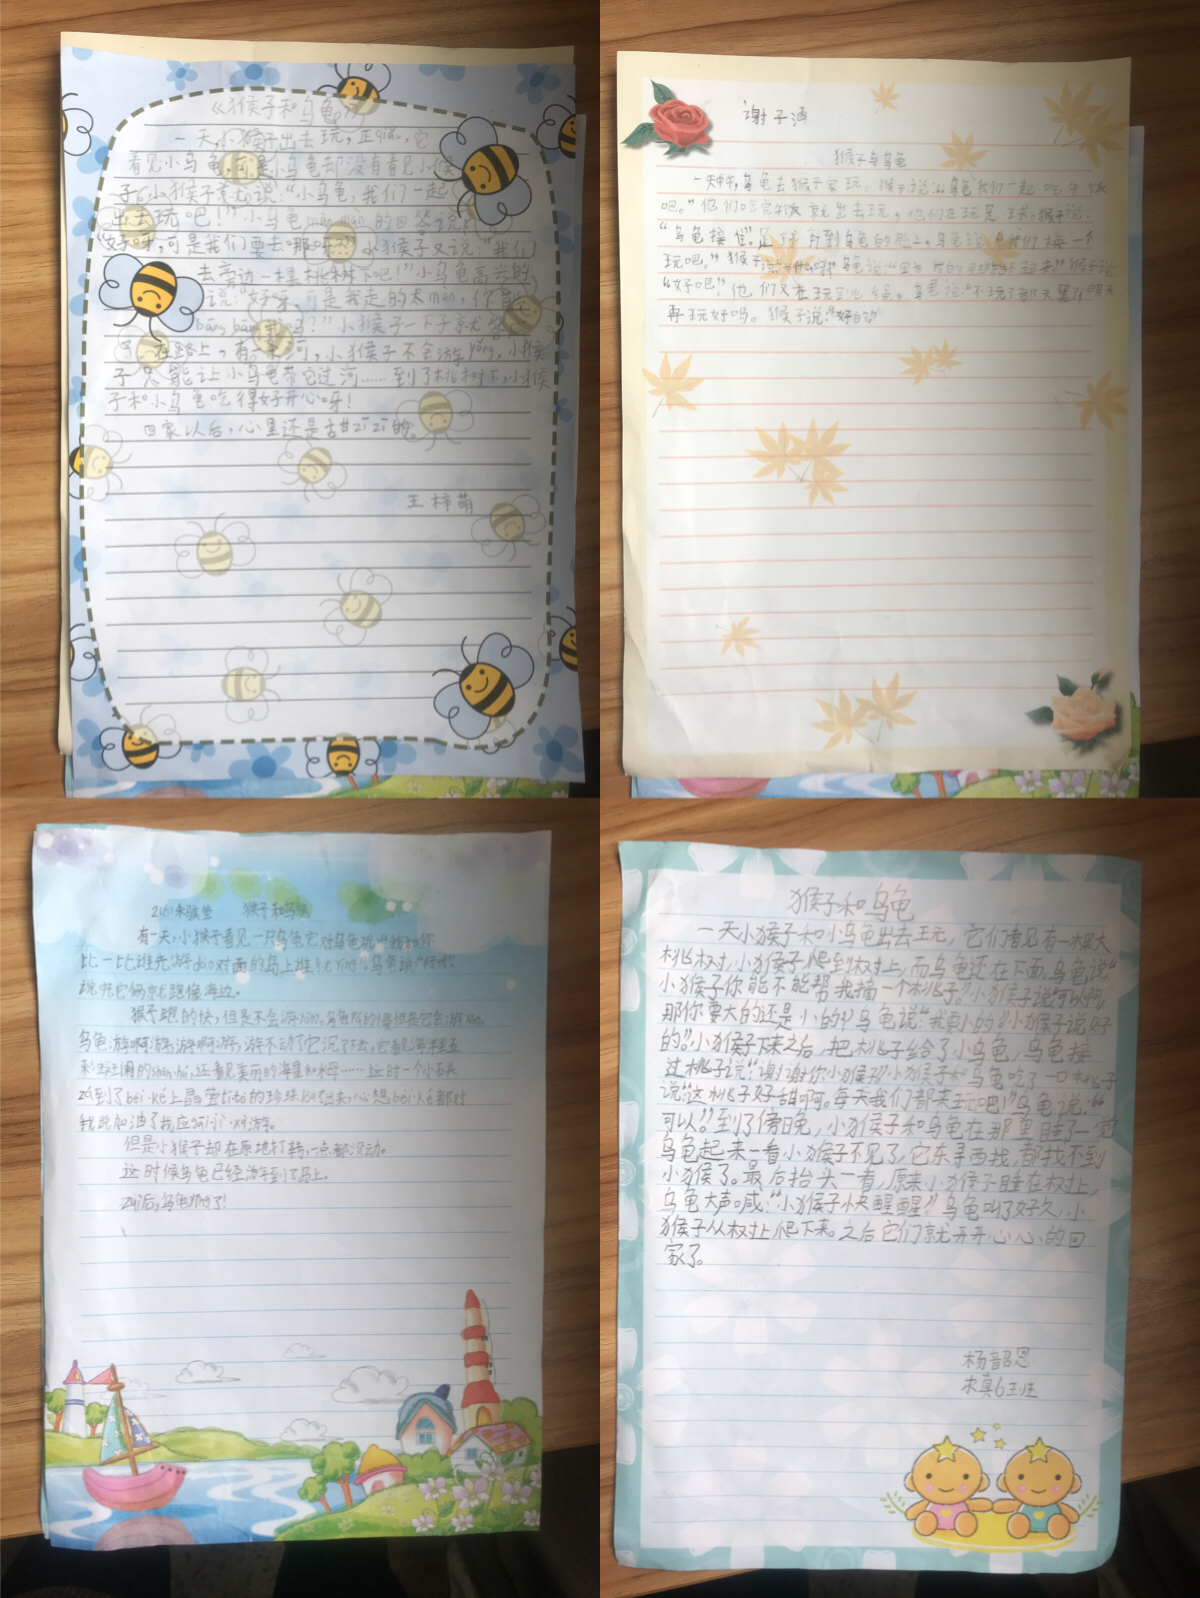 《猴子和乌龟》
一天,小猴子出去玩,正qiǎo,它
看见小乌龟,可是小乌龟却没有看见小猴
子。小猴子就说:“小乌龟,我们一起
出去玩吧!”小乌龟màn màn的回答说:
“好呀,可是我们要去哪呀?”小猴子又说:“我们
去旁边一棵桃树下吧!”小乌龟高兴的
说:“好呀,可是我走的太màn,你
bāng bāng我吗?”小猴子一下子就
在路上,有一条河,小猴子不会游yǒng,小猴
子只能让小乌龟带它过河……到了桃树下,小猴
子和小乌龟吃得好开心呀!
回家以后,心里还是甘zī zī的。
王梓萌
谢子涵
猴子与乌龟
一天中午,乌龟去猴子家玩。猴子说:“乌龟我们一起吃午饭
吧。”他们吃完午饭就出去玩,他们在玩足球。猴子说:
“乌龟接住。”足球打到乌龟的脸上。乌龟说:“我们换一个
玩吧。”猴子说:“为什么呀”乌龟说:“因为”猴子说:
“好吧”他们又在玩跳绳。乌龟说:“不玩了都天黑了明天
再玩好吗。猴子说:“好的”
猴子和乌龟
有一天,小猴子看见一只乌龟它对乌龟说:“我和你
比一比谁先游dào对面的岛上谁就yíng。”乌龟说:“好吧”
说完它俩就跑像海边。
猴子跑的快,但是不会游yǒng。乌龟爬的慢但是它会游
乌龟游啊游,游啊游,游不动了它沉了下去,它看见海里五
彩斑斓的shān hú,还看见美丽的海星和水母……这时一个小石头
到了bèi ké上晶莹的珍珠出来,心想bèi ké都对
我说加油了我应gāi游。
但是小猴子却在原地打转,一点都没动。
这时候乌龟已经游到了岛上。
最后,乌龟yíng了!
猴子和乌龟
一天小猴子和小乌龟出去玩,它们看见有一棵大
桃树,小猴子爬到树上,而乌龟还在下面,乌龟说“
小猴子你能不能帮我摘一个桃子。”小猴子说可以啊
那你要大的还是小的?”乌龟说:“我要小的”小猴子说好
的”小猴子下来之后,把桃子给了小乌龟,乌龟接
过桃子说:“谢谢你小猴子”小猴子和乌龟吃了一口桃子
说“这桃子好甜啊。每天我们都来玩吧!”乌龟说:“
可以”到了傍晚,小猴子和乌龟在那里睡了一觉
乌龟起来一看小猴子不见了,它东寻西找,都找不到
小猴了。最后抬头一看,原来小猴子睡在树上,
乌龟大声喊:“小猴子快醒醒”乌龟叫了好久,小
猴子从树上爬下来。之后它们就开开心心的回
家了。
杨韶恩
求真6王班